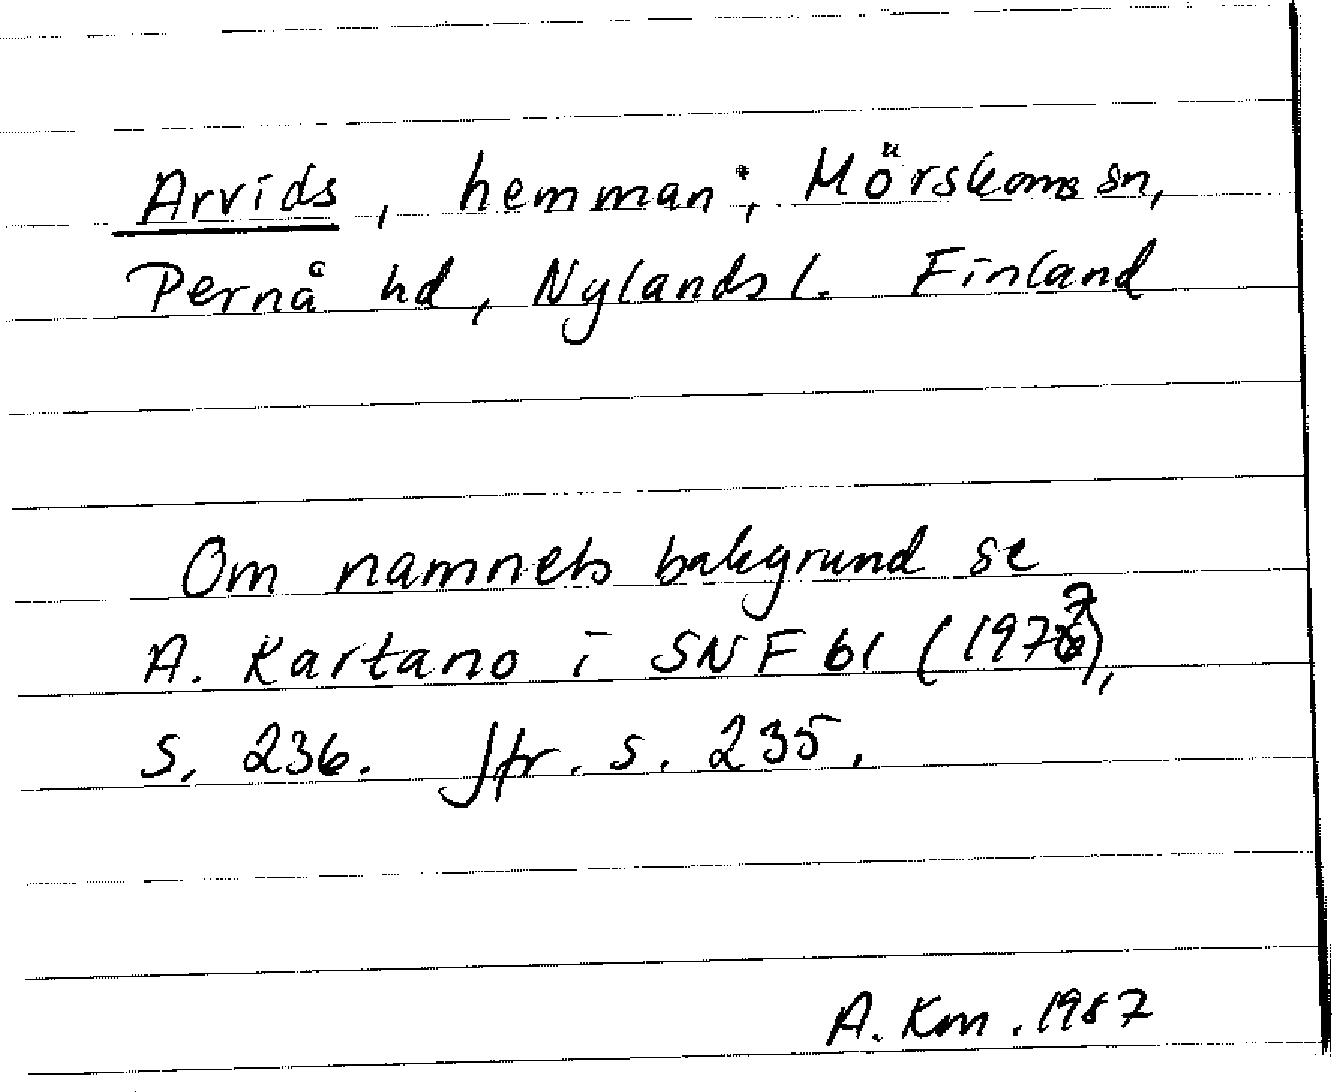 Arvids, hemman; Mörskoms sn,
Pernå hd, Nylands l. Finland
Om namnets bakgrund se
A. Kartano i SNF 61 (1977),
s. 236. Jfr. s. 235.
A. Km. 1987